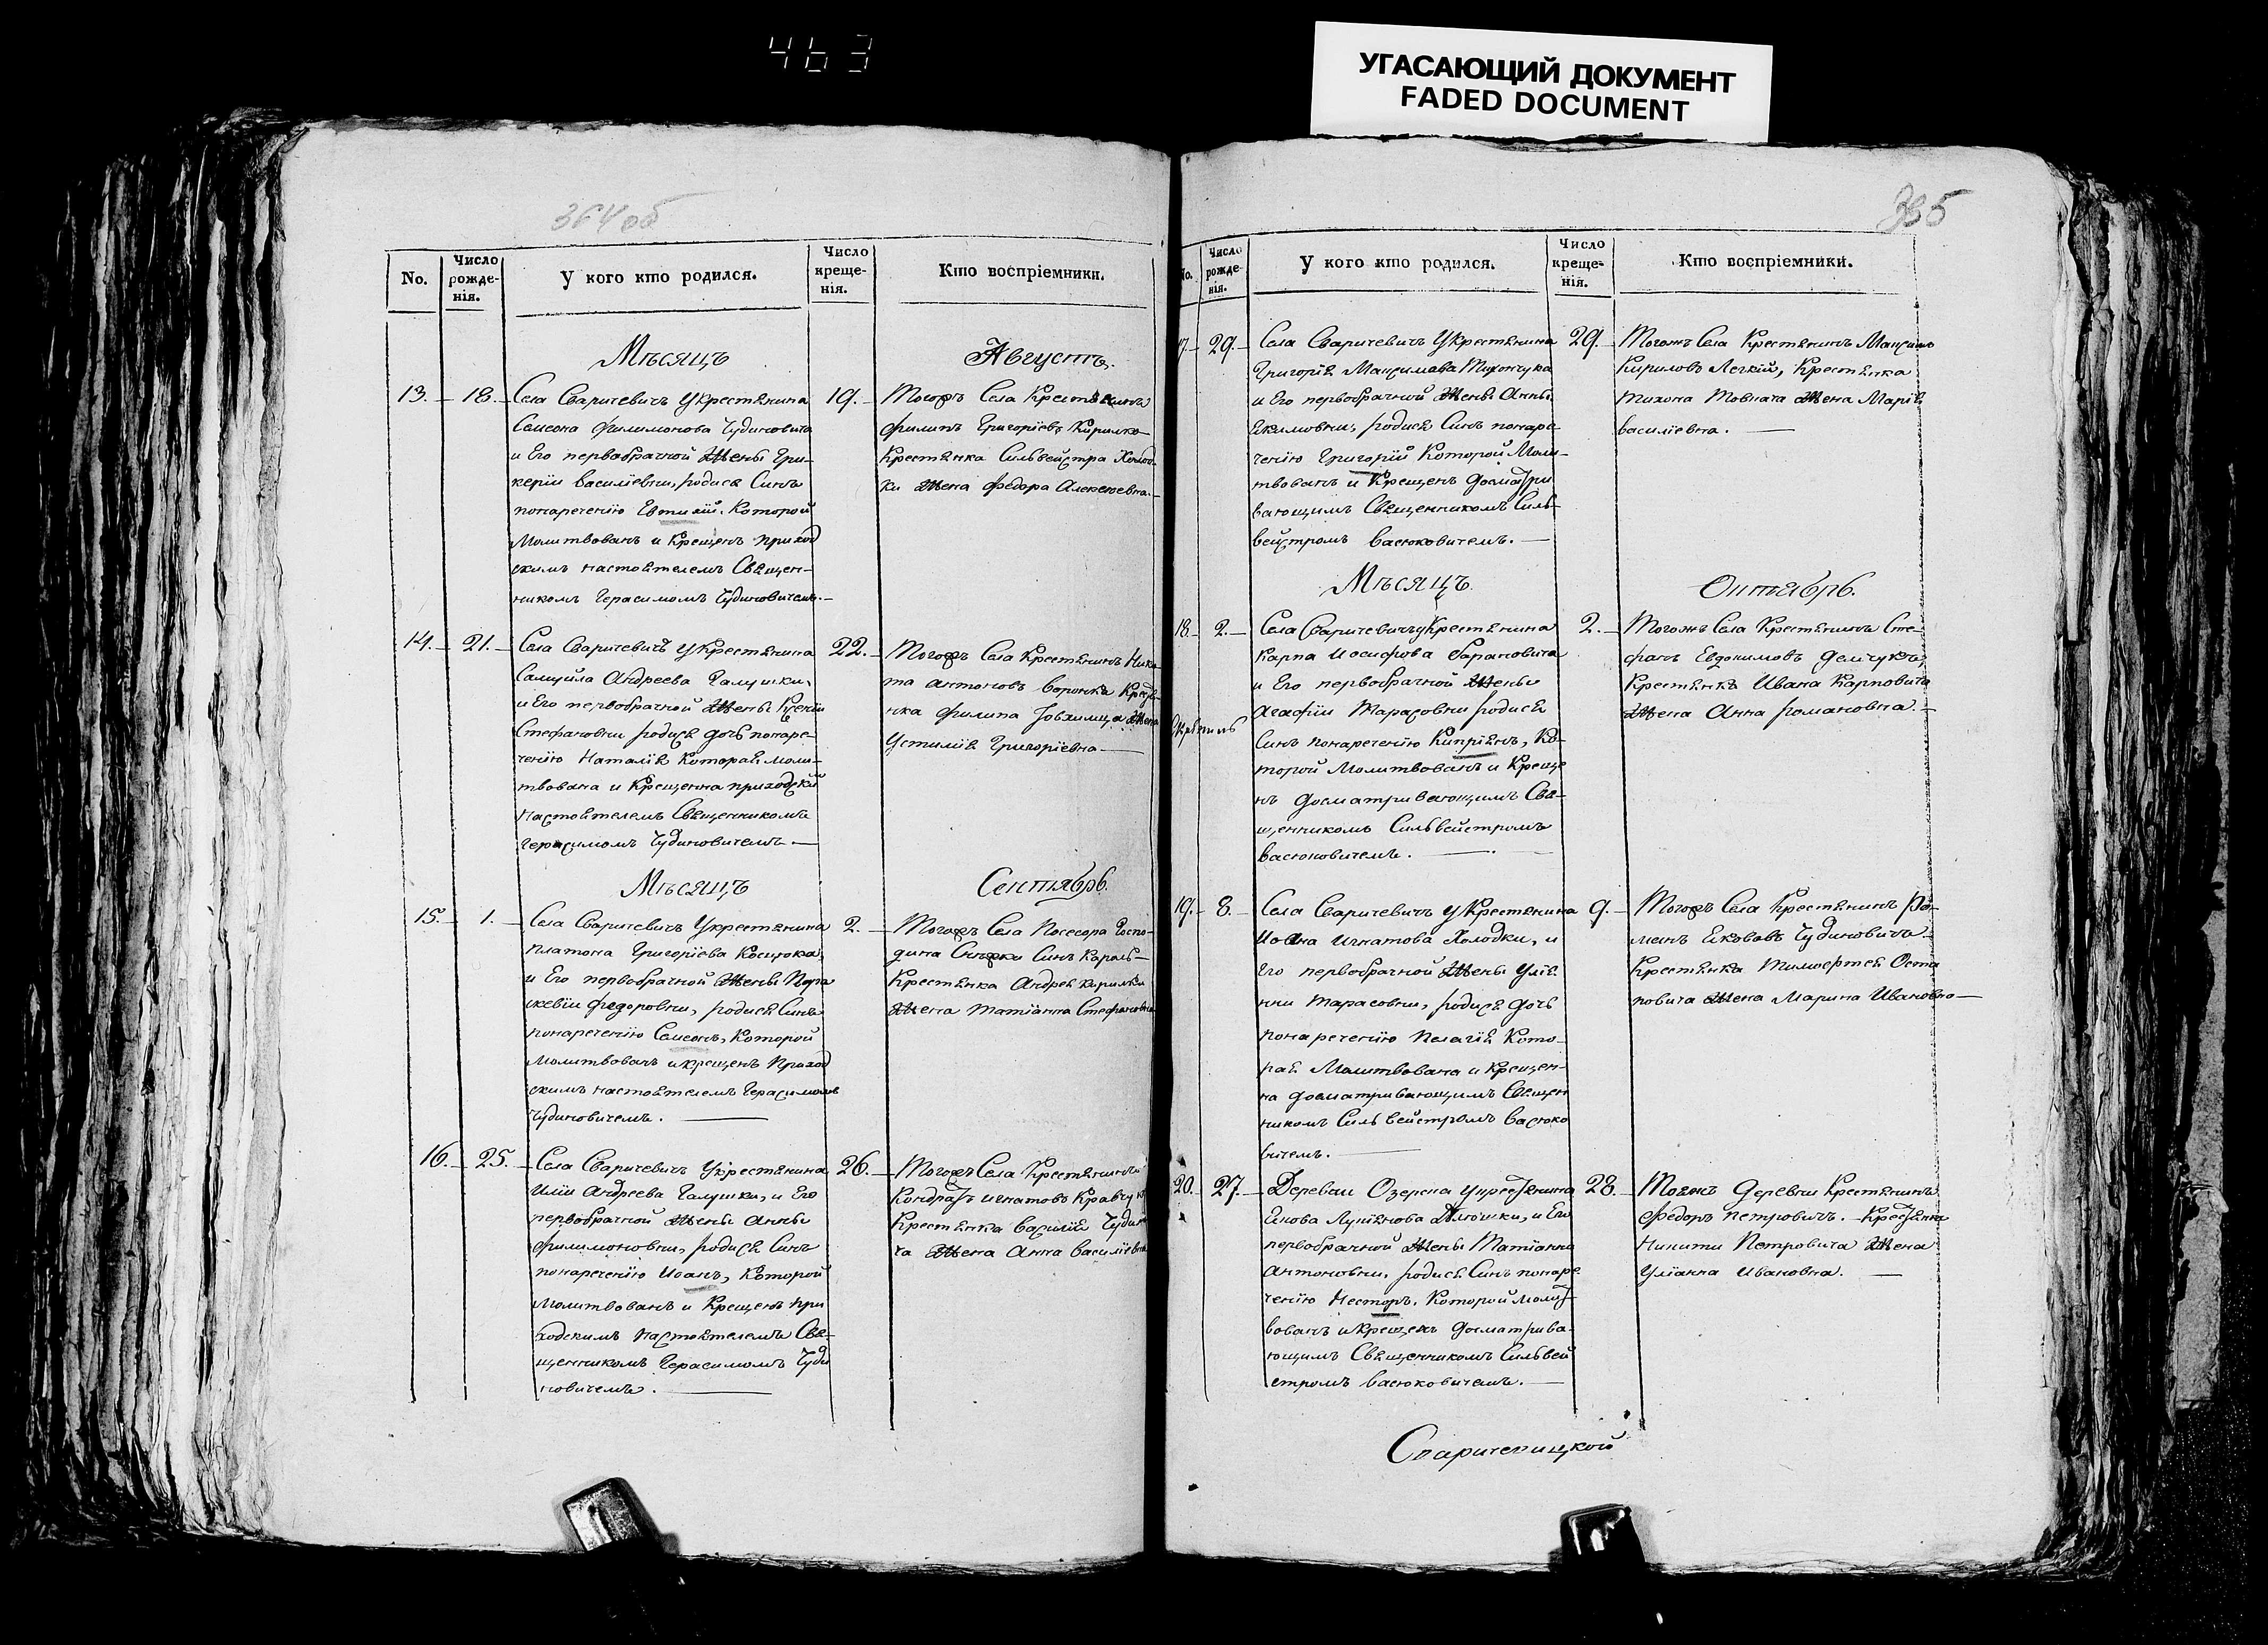 463
УГАСАЮЩИЙ ДОКУМЕНТ
FADED DOCUMENT
364 об
No.
Число рожде-нія.
У кого кто родился.
Число креще-нія.
Кто воспріемники.
Мѣсяцъ Августъ.
13. 18. 19.
Села Сваричевичъ Укрестянина
Самсона Филимонова Чудиновича
и Его первобрачной жены Гли-
керіи василіевны, родися Синъ
понареченію Евтихій. Которой
Молитвованъ и Крещенъ приход
скимъ настоятелемъ Священ-
никомъ Герасимомъ Чудиновичемъ.—
Тогожъ Села Крестянинъ
Филипъ Григоріевъ Кирилко
Крестянка Сильвейстра Холод
ки жена Федора Алексеевна.—
14. 21. 22.
Села Сваричевичъ Укрестянина
Самуйла Андреева Галушки,
и Его первобрачной жены Ксеніи
Стефановны родися дочь понаре-
ченію Наталія Которая моли-
твована и Крещенна приходскій
Настоятелемъ Священникомъ
Герасимомъ Чудиновичемъ.—
Тогожъ Села Крестянинъ Ники-
та антоновъ Воронка Крестя-
нка филипа жена
Устимія Григоріевна—
Мѣсяцъ Сентябрь.
15. 1. 2.
Села Сваричевичъ Укрестянина
Платона Григоріева Косцюка,
и Его первобрачной жены Пара
скевіи федоровны, родися Синъ
понареченію Самсонъ, Которой
Молитвованъ и крещенъ Приход
скимъ настоятелемъ Герасимомъ
Чудиновичемъ.—
Тогожъ Села Посесора Госпо-
дина Синъ Кароль—
Крестянка Андрея Кирилки
жена татіанна Стефановна
16. 25. 26.
Села Сваричевичъ Укрестянина
Иліи Андреева Галушки, и Его
первобрачной жены анны
Филимоновны, родися Синъ
понареченію Иоанъ, Которой
Молитвованъ и Крещенъ при
ходскимъ Настоятелемъ Свя-
щенникомъ Герасимомъ Чуди
новичемъ.—
Тогожъ Села Крестянинъ
Кондратъ игнатовъ Кравчук
Крестянка василія Чудин
ча жена анна василіевна
365
No.
Число рожде-нія.
У кого кто родился.
Число креще-нія.
Кто воспріемники.
17. 29. 29.
Села Сваричевичъ Укрестянина
Григорія Максимова Тихончука
и Его первобрачной жены Анны
Екимовны, родися Синъ понаре-
ченію Григорій Которой Моли-
твованъ и Крещенъ досматри
вающимъ Священникомъ Силь-
вейстромъ васюковичемъ.—
Тогожъ Села Крестянинъ Максимъ
Кириловъ Легкій, Крестянка
Тихона Товпача жена Марія
василіевна.—
Мѣсяцъ Октябрь.
18. 2. 2.
Села Сваричевичъ у Крестянина
Карпа иосифова Барановича
и Его первобрачной жены
агафіи Тарасовны родися
Синъ понареченію Кипріянъ, Ко-
торой Молитвованъ и Креще
нъ досматривающимъ Свя-
щенникомъ Сильвейстромъ
васюковичемъ.—
Тогожъ Села Крестянинъ Сте-
фанъ Евдокимовъ демчукъ,
Крестянка Ивана Карповича
жена Анна романовна.—
19. 8. 9.
Села Сваричевичъ у Крестянина
Иоана игнатова Холодки, и
Его первобрачной жены Улія
нни тарасовни, родися дочь
понареченію Пелагія Кото-
рая Молитвована и Крещен-
на досматривающимъ Священ
никомъ Сильвейстромъ васюко
вичемъ.—
Тогожъ Села Крестянинъ Ро-
манъ Екововъ Чудиновичъ
Крестянка Тимофтея Оста
повича жена Марина Ивановна—
20. 27. 28.
Деревни Озерска укрестянина
Екова Лукянова и Его
первобрачной жены Татіанни
Антоновни, родися Синъ понаре
ченію Несторъ, Которой молит
вованъ икрещенъ досматрива-
ющимъ Священникомъ Сильвей
стромъ васюковичемъ.—
Тояжъ деревни Крестянинъ
Федоръ петровичъ. Крестянка
Никити Петровича жена
Уліанна ивановна.—
Сваричевицкой